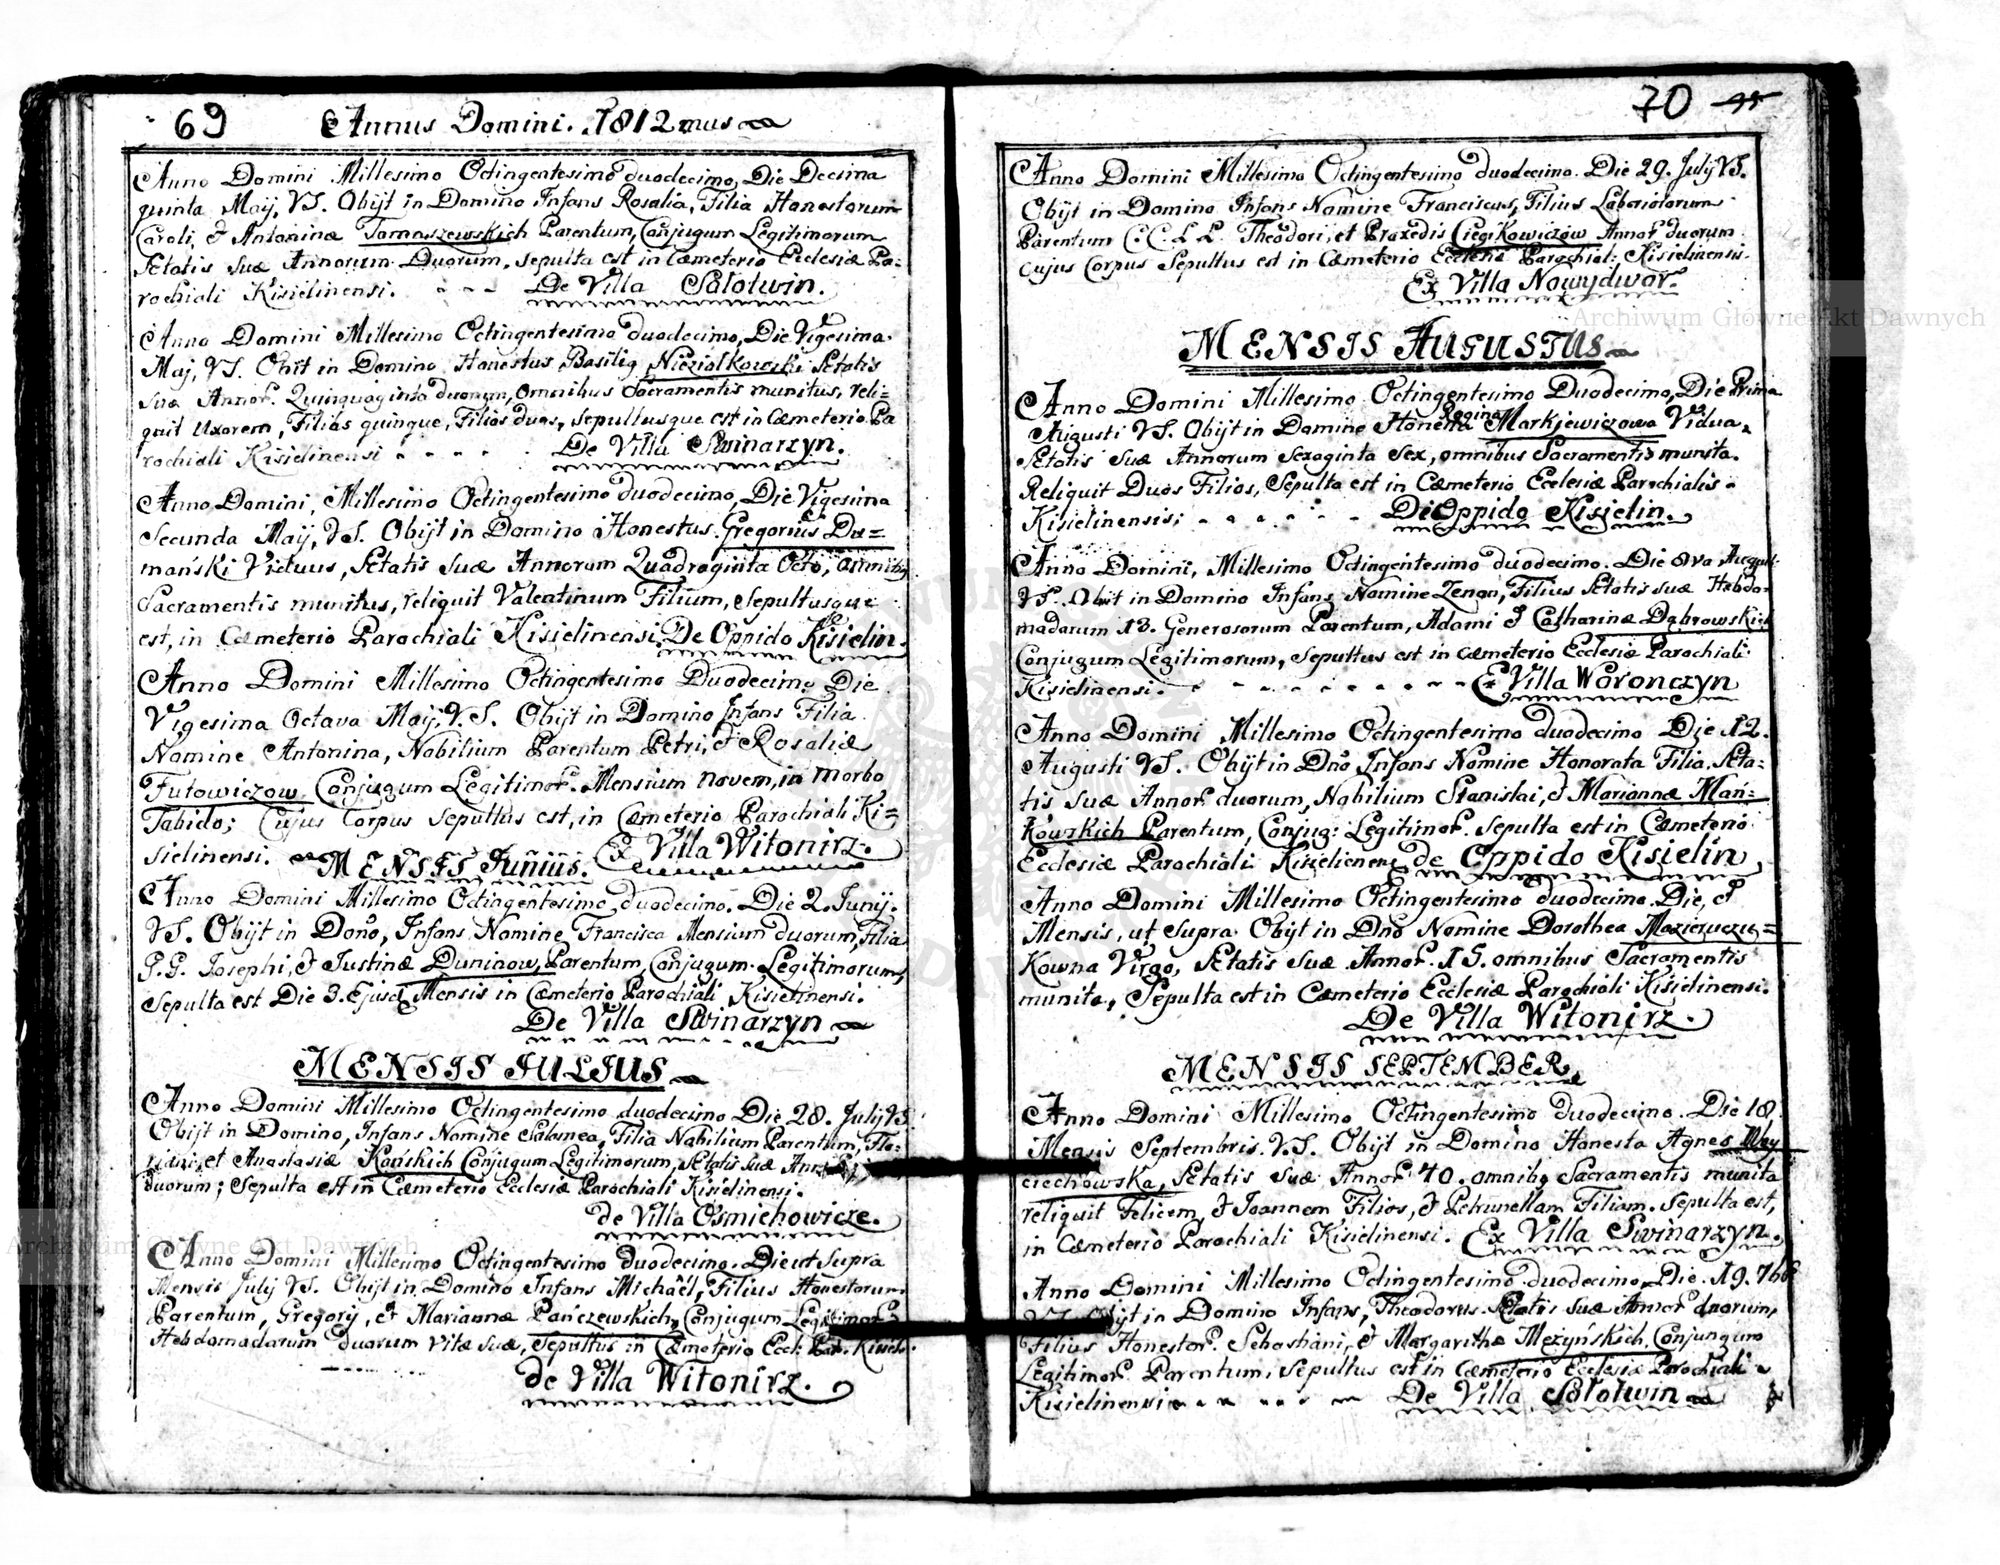 69 Annus Domini. 1812mus
Anno Domini Millesimo Octingentesimo duodecimo, Die Decima
quinta Maij, VS. Obijt in Domino Infans Rosalia, Filia Honestorum
Caroli, & Antoninæ Tomaszewskich Parentum, Conjugum Legitimorum
Ætatis Suæ Annorum Duorum, sepulta est in Cæmeterio Ecclesiæ Pa=
rochiali Kisielinensi. De Villa Sołotwin.
Anno Domini Millesimo Octingentesimo duodecimo, Die Vigesima
Maj, VS. Obiit in Domino Honestus Basilig Nieziołkowski Ætatis
Suæ Annor. Quinquaginta duorum, omnibus Sacramentis munitus, reli=
quit Uxorem, Filias quinque, Filios duos, sepultusque est in Cæmeterio Pa
rochiali Kisielinensi De Villa Swinarzyn.
Anno Domini, Millesimo Octingentesimo duodecimo, Die Vigesima
Secunda Maij, VS. Obijt in Domino Honestus Gregorius Du=
mański Viduus, Ætatis Suæ Annorum Quadraginta Octo, omnibg
Sacramentis munitus, reliquit Valentinum Filium, Sepultusque
est, in Cæmeterio Parochiali Kisielinensi, De Oppido Kisielin.
Anno Domini Millesimo Octingentesimo Duodecimo Die
Vigesima Octava Maij, V.S. Obijt in Domino Infans Filia
Nomine Antonina, Nobilium Parentum Petri, & Rosaliæ
Futowiczow Conjugum Legitimor. Mensium novem, in morbo
Tabido; Cujus Corpus Sepultus est, in Cæmeterio Parochiali Ki=
sielinensi. Ex Villa Witonirz.
MENSIS Junius.
Anno Domini Millesimo Octingentesimo duodecimo. Die 2. Junij.
VS. Obijt in Dono, Infans Nomine Francisca Mensium duorum, Filia
G.G. Josephi, & Justinæ Duninow, Parentum, Conjugum Legitimorum,
Sepulta est Die 3. Ejusd Mensis in Cæmeterio Parochiali Kisielinensi.
De Villa Swinarzyn
MENSIS JULIUS
Anno Domini Millesimo Octingentesimo duodecimo Die 28. Julij VS.
Obijt in Domino, Infans Nomine Salomea, Filia Nobilium Parentum, Flo=
riani, et Anastasiæ Kańskich Conjugum Legitimorum, Ætatis Suæ
duorum; Sepulta est in Cæmeterio Ecclesiæ Parochiali Kisielinensi.
de Villa Osmichowicze.
Anno Domini Millesimo Octingentesimo duodecimo. Die ut Supra
Mensis Julij VS. Obijt in Domino Infans Michaël, Filius Honestorum
Parentum, Gregorij, & Mariannæ Pańczewskich, Conjugum
Hebdomadarum duorum Vitæ suæ, Sepultus in Cæmeterio Eccl: Par. Kisiel:
de Villa Witonirz.
70
Anno Domini Millesimo Octingentesimo duodecimo. Die 29. Julij VS.
Obijt in Domino Infans Nomine Franciscus, Filius Laboriotorum
Parentum C.C.L.L. Theodori, et Praxedis Ciegikowiczow Annor. duorum
Cujus Corpus Sepultus est in Cæmeterio Ecclesiæ Parochial: Kisielinensi.
Ex Villa Nowydwor.
MENSIS AUGUSTUS
Anno Domini Millesimo Octingentesimo Duodecimo, Die Prima
Augusti VS. Obijt in Domino Honesta Regina Markjewiczowa Vidua,
Ætatis Suæ Annorum Sexaginta Sex, omnibus Sacramentis munita.
Reliquit Duos Filios, Sepulta est in Cæmeterio Ecclesiæ Parochialis
Kisielinensis; Di Oppido Kisielin.
Anno Domini, Millesimo Octingentesimo duodecimo. Die 8va August:
VS. Obiit in Domino Infans Nomine Zenon, Filius Ætatis suæ Hebdo
madarum 13. Generosorum Parentum, Adami & Catharinæ Dąbrowskich
Conjugum Legitimorum, Sepultus est in Cæmeterio Ecclesiæ Parochiali
Kisielinensi. Ex Villa Woronczyn
Anno Domini Millesimo Octingentesimo duodecimo Die 12.
Augusti VS. Obijt in Dno Infans Nomine Honorata Filia, Æta=
tis Suæ Annor. duorum, Nobilium Stanislai, & Mariannæ Mań=
kowskich Parentum, Conjug: Legitimor. Sepulta est in Cæmeterio
Ecclesiæ Parochiali Kisielinens de Oppido Kisielin
Anno Domini Millesimo Octingentesimo duodecimo. Die, &
Mensis, ut Supra Obijt in Dno Nomine Dorothea Mazieruczu=
kowna Virgo, Ætatis Suæ Annor. 15. omnibus Sacramentis
munita, Sepulta est in Cæmeterio Ecclesiæ Parochiali Kisielinensi.
De Villa Witonirz.
MENSIS SEPTEMBER
Anno Domini Millesimo Octingentesimo duodecimo. Die 18.
Mensis Septembris. V.S. Obijt in Domino Honesta Agnes Woy
ciechowska, Ætatis Suæ Annor. 40. omnibg Sacramentis munita
reliquit Felicem, & Joannem Filios, & Petrunellam Filiam. Sepulta est,
in Cæmeterio Parochiali Kisielinensi. Ex Villa Swinarzyn.
Anno Domini Millesimo Octingentesimo duodecimo, Die. 19. 7br
Obijt in Domino Infans, Theodorus Ætatis Suæ Annor duorum,
Filius Honestor. Sebastiani, & Margarithæ Mezyńskich, Conjungum
Legitimor. Parentum, Sepultus est in Cæmeterio Ecclesiæ Parochiali
Kisielinensi De Villa Sołotwin
Archiwum Główne Akt Dawnych
Archiwum Główne Akt Dawnych